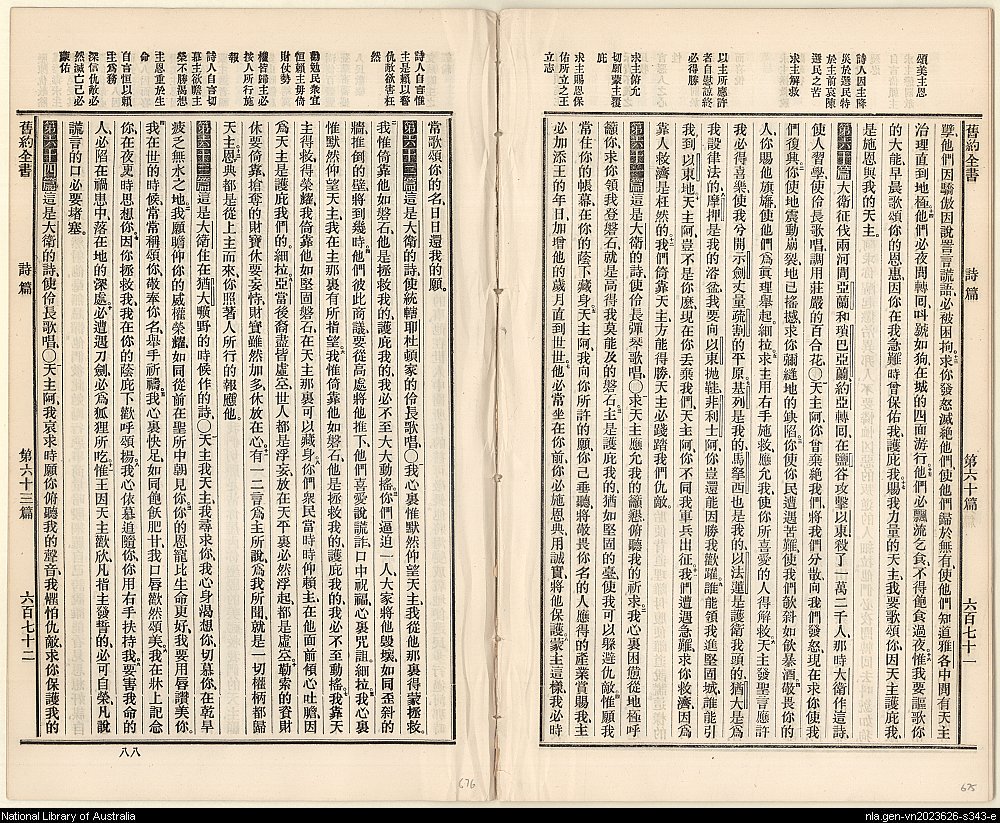 舊約全書 詩篇 第六十篇 六百七十一
頌美主恩
詩人因主降災於選民特於主前哀陳選民之苦
求主解救
以主所應許者自慰諒終必得勝
求主俯允切願蒙主覆庇
求主賜恩保佑所立之王立志
孽、他們因驕傲因說詈言謊語、必被困拘、求你發怒滅絕他們、使他們歸於無有、使他們知道雅各中間有天主
治理直到地極、他們必夜間轉回、叫號如狗、在城的四面游行、他們必飄流乞食、不得飽食過夜、惟我要謳歌你
的大能、早晨歌頌你的恩惠、因你在我急難時曾保佑我護庇我、賜我力量的天主、我要歌頌你、因天主護庇我、
是施恩與我的天主。
第六十篇 大衛征伐兩河間亞蘭和瑣巴亞蘭、約亞轉回、在鹽谷攻擊以東、殺了一萬二千人、那時大衛作這詩、
使人習學、使伶長歌唱、調用莊嚴的百合花、〇天主阿、你曾棄絕我們、將我們分散、向我們發怒、現在求你使我
們復興、你使地震動崩裂、地已搖撼、求你彌縫地的缺陷、你使你民遭遇苦難、使我們欹斜如飲暴酒、敬畏你的
人、你賜他旗旛、使他們爲眞理舉起、細拉、求主用右手施救、應允我、使你所喜愛的人得解救、天主發聖言應許
我必得喜樂、使我分開示劍、丈量疏割的平原、基列是我的、馬拏西也是我的、以法蓮是護衛我頭的、猶大是爲
我設律法的、摩押是我的浴盆、我要向以東拋鞋、非利士阿、你豈還能因勝我歡躍、誰能領我進堅固城、誰能引
我到以東地、天主阿、豈不是你麼、現在你丟棄我們、天主阿、你不同我軍兵出征、我們遭遇急難、求你救濟、因爲
靠人救濟是枉然的、我們倚靠天主方能得勝、天主必踐踏我們仇敵。
第六十一篇 這是大衛的詩、使伶長彈琴歌唱、〇求天主應允我的籲懇、俯聽我的祈求、我心裏困憊、從地極呼
籲你、求你領我登磐石、就是高得我莫能及的磐石、主是護庇我的、猶如堅固的臺、使我可以躲避仇敵、惟願我
常住在你的帳幕、在你的蔭下藏身、天主阿、我向你所許的願、你己垂聽、將敬畏你名的人應得的產業賞賜我、主
必加添王的年日、加增他的歲月直到世世、他必常坐在你前、你必施恩典、用誠實、將他保護、蒙主這樣、我必時
舊約全書 詩篇 第六十三篇 六百七十二
詩人自言惟主是賴以警仇敵欲害枉然
勸勉民衆宜恒賴主毋倚財仗勢
權皆歸主必按人所行施報
詩人自言切慕主欲瞻主榮不勝渴想
主恩重於生命
自言恒以賴主爲務
深信仇敵必然滅亡己必蒙佑
常歌頌你的名、日日還我的願。
第六十二篇 這是大衛的詩、使統轄耶杜頓家的伶長歌唱、〇我心裏惟默然仰望天主、我從他那裏得蒙拯救、
我惟倚靠他如磐石、他是拯救我的護庇我的、我必不至大動搖、你們逼迫一人、大家將他毀壞、如同歪斜的
牆、推倒的壁、將到幾時、他們彼此商議、要從高處將他推下、他們喜愛說謊詐、口中祝福、心裏咒詛、細拉、我心裏
惟默然仰望天主、我在主那裏有所指望、我惟倚靠他如磐石、他是拯救我的護庇我的、我必不至動搖、我靠天
主得救、得榮耀、我倚靠他如堅固磐石、在天主那裏可以藏身、你們衆民當時時仰賴主、在他面前傾心吐膽、因
爲天主是護庇我們的、細拉、亞當後裔盡皆虛空、世人都是浮妄、放在天平裏必然浮起、都是虛空、勒索的貲財
休要倚靠、搶奪的財寶休要妄恃、財寶雖然加多、休放在心、有一二言爲主所說、爲我所聞、就是一切權柄都歸
天主、恩典都是從上主而來、你照著人所行的報應他。
第六十三篇 這是大衛住在猶大曠野的時候作的詩、〇天主我天主、我尋求你、我心身渴想你、切慕你、在乾旱
疲乏無水之地、我願瞻仰你的威權榮耀、如同從前在聖所中朝見你、你的恩寵比生命更好、我要用唇讚美你、
我在世的時候、常常稱頌你、敬奉你名、舉手祈禱、我心裏快足如同飽飫肥甘、我口唇歡然頌美、我在牀上記念
你、在夜更時思想你、因你拯救我、我在你的蔭庇下歡呼頌揚、我心依慕追隨你、你用右手扶持我、要害我命的
人、必陷在禍患中、落在地的深處、必遭遇刀劍、必爲狐狸所吃、惟王因天主歡欣、凡指主發誓的必可自榮、凡說
謊言的口必要堵塞。
第六十四篇 這是大衛的詩、使伶長歌唱、〇天主阿、我哀求時、願你俯聽我的聲音、我懼怕仇敵、求你保護我的
八八
676
675
National Library of Australia
nla.gen-vn2023626-s343-e